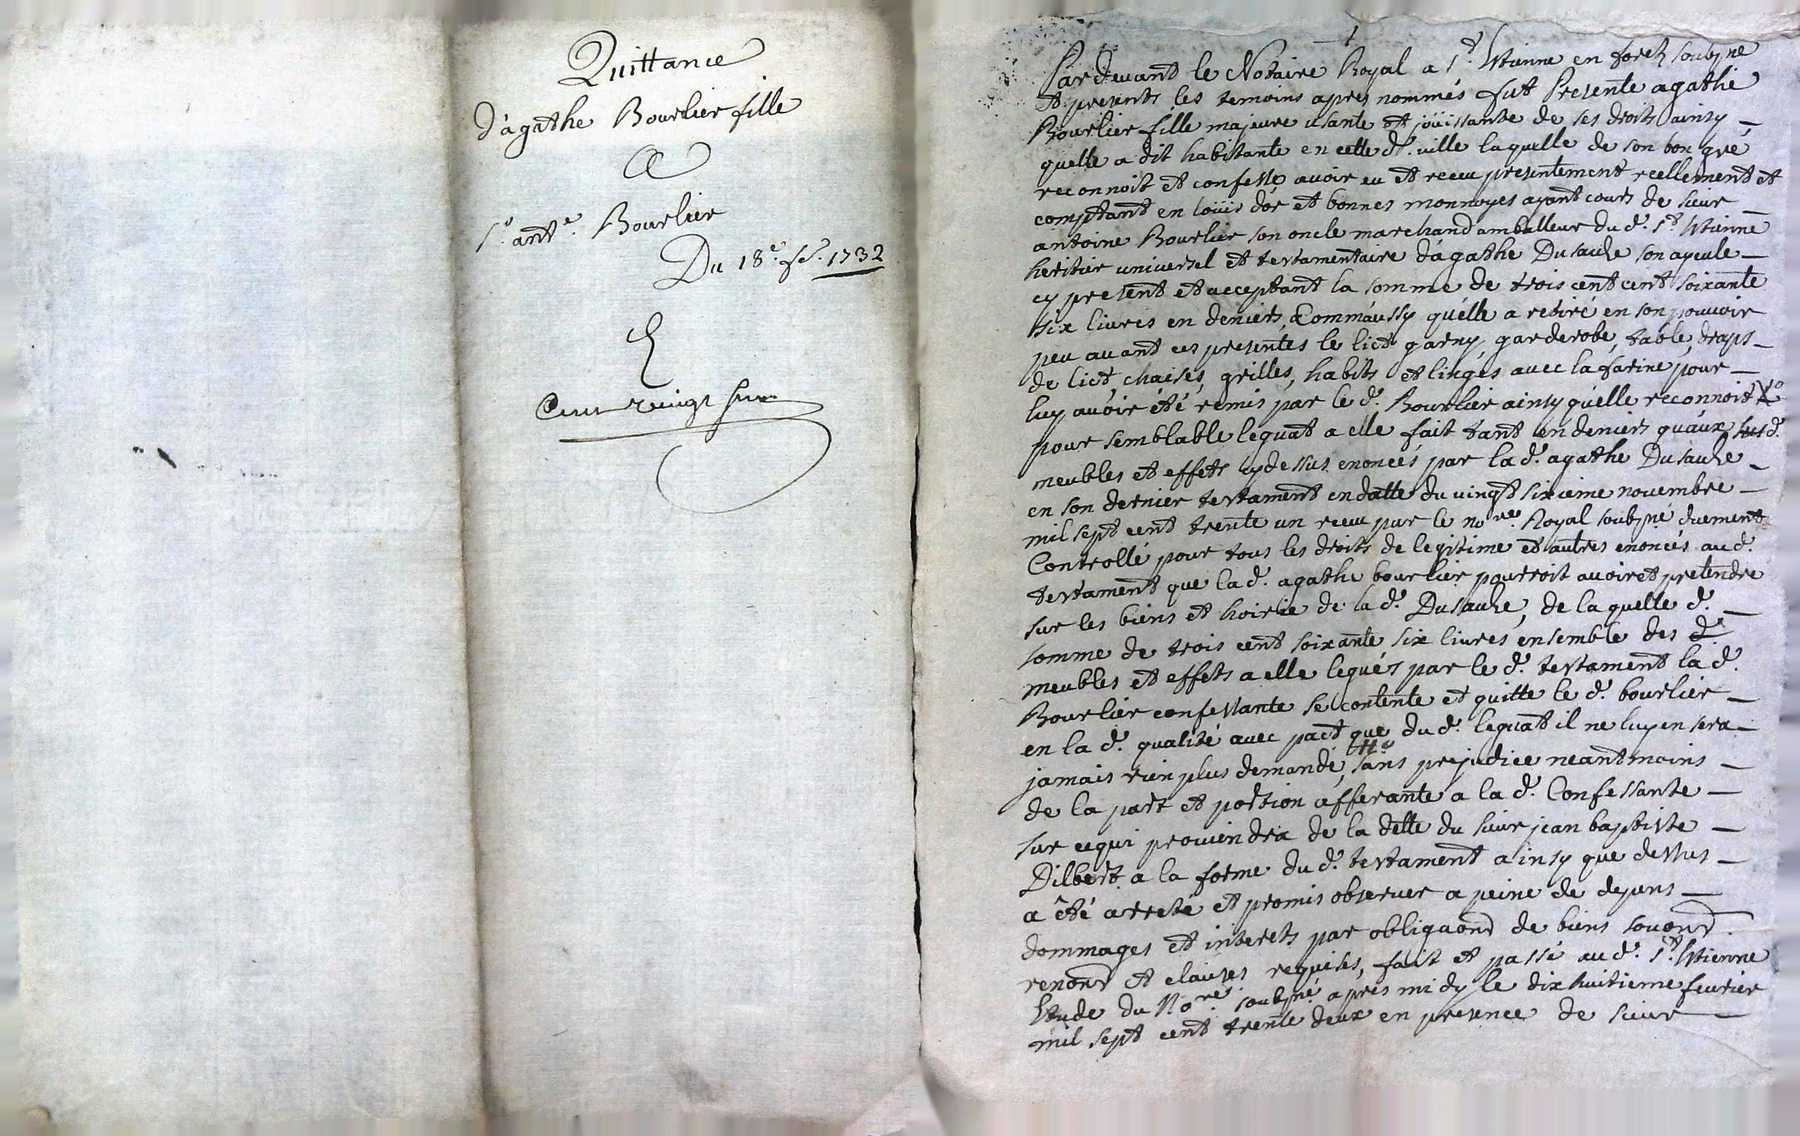 Quittance
d'agathe Bourlier fille
A
Sr. ante. Bourlier
Du 18e. fer. 1732
Cent vingt
Pardevant le Notaire Royal a St. Etienne en forez soubné
et presents les temoins apres nommés fut Presente agathe
Bourlier fille majeure usante et joüissante de ses droits ainsy
quelle a dit habitante en cette de. ville laquelle de son bon gré
reconnoit et confesse avoir eu et receu presentement reellement et
comptant en loüis d'or et bonnes monnoyes ayant cours de sieur
antoine Bourlier son oncle marchand amballeur du d. St. Etienne
heritier universel et testamentaire d'agathe Dusauze son ayeule
cy present et acceptant la somme de trois cent cent soixante
six livres en deniers, Comm'aussy qu'elle a retiré en son pouvoir
peu avant ces presentes le lict garny, garderobe, table, draps
de lict, chaises, grilles, habits et linges avec la farine pour
luy avoir été remis par le d. Bourlier ainsy qu'elle reconnoit
pour semblable leguat a elle fait tant en deniers qu'aux susd.
meubles et effets cy dessus enoncés par la d. agathe Dusauze
en son dernier testament en datte du vingt sixieme novembre
mil sept cent trente un receu par le nore Royal soubné duement
Controllé pour tous les droits de legitime et autres enoncés aud.
testament que la d. agathe bourlier pourroit avoir et pretendre
sur les biens et hoirie de la d. Dusauze, de la quelle d.
somme de trois cent soixante six livres ensemble des d.
meubles et effets a elle legués par le d. testament la d.
Bourlier confessante se contente et quitte le d. bourlier
en la d. qualité avec pact que du d. leguat il ne luy en sera
jamais rien plus demandé, sans prejudice neantmoins
de la part et portion afferante a la d. Confessante
sur ce qui proviendra de la dette du sieur jean baptiste
Dilbert a la forme du d. testament ainsy que dessus
a été arreté et promis observer a peine de depens
dommages et interets par obligaond de biens
renond et clauses requises, fait et passé au d. St. Etienne
Etude du Nore soubné apres midy le dix huitieme fevrier
mil sept cent trente deux en presence de sieur